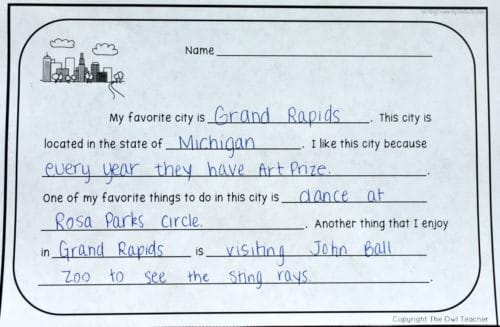 Name
My favorite city is Grand Rapids. This city is
located in the state of Michigan. I like this city because
every year they have Art Prize.
One of my favorite things to do in this city is dance at
Rosa Parks Circle. . Another thing that I enjoy
in Grand Rapids is visiting John Ball
Zoo to see the sting rays. .
Copyright The Owl Teacher